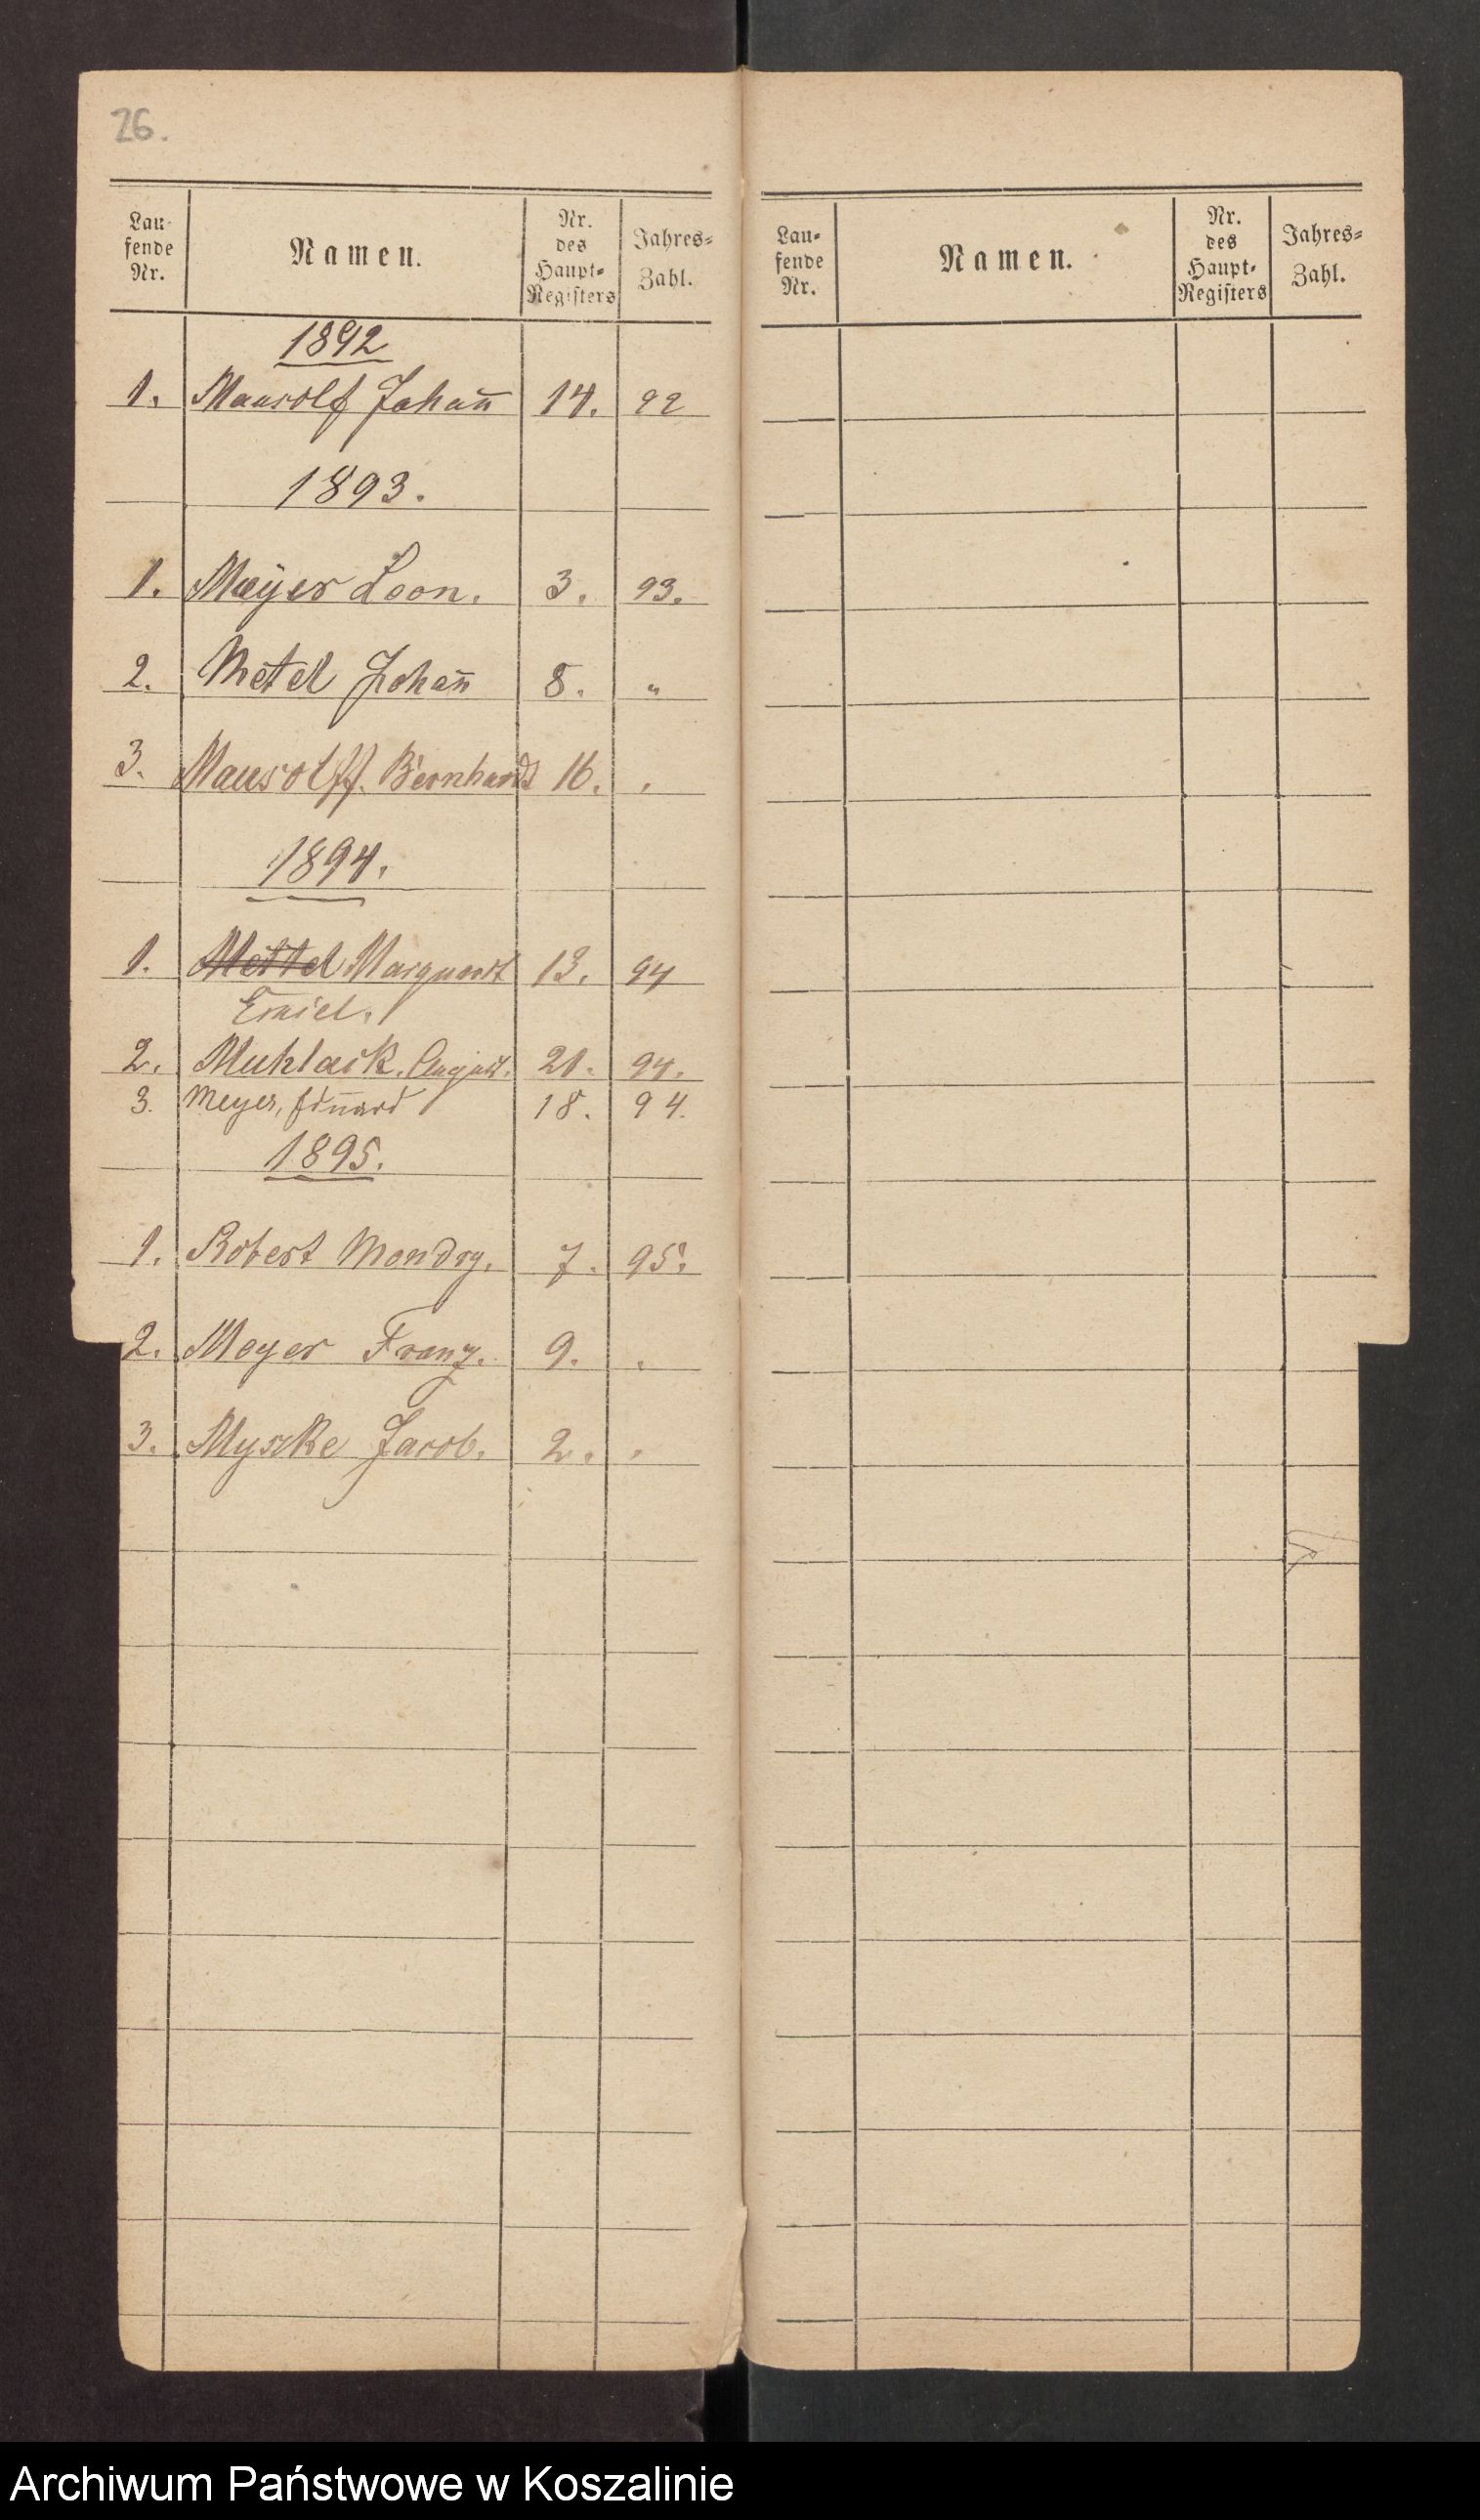 26.
Lau-
fende
Nr.
Namen.
Nr.
des
Haupt-
Registers
Jahres-
Zahl.
1892
1. Mausolf Johan̄ 14. 92
1893.
1. Meÿer Leon. 3. 93.
2. Metel Johan̄ 8. "
3. Mausolff. Bernhardt 16. "
1894.
1. Mettel Marquardt 13. 94
Emiel.
2. Muhlack. August. 21. 94.
3. Meyer, Eduard 18. 94.
1895.
1. Robert Mondry. 7. 95.
2. Meyer Franz. 9. "
3. Myszke Jacob. 2. "
Lau-
fende
Nr.
Namen.
Nr.
des
Haupt-
Registers
Jahres-
Zahl.
Archiwum Państwowe w Koszalinie